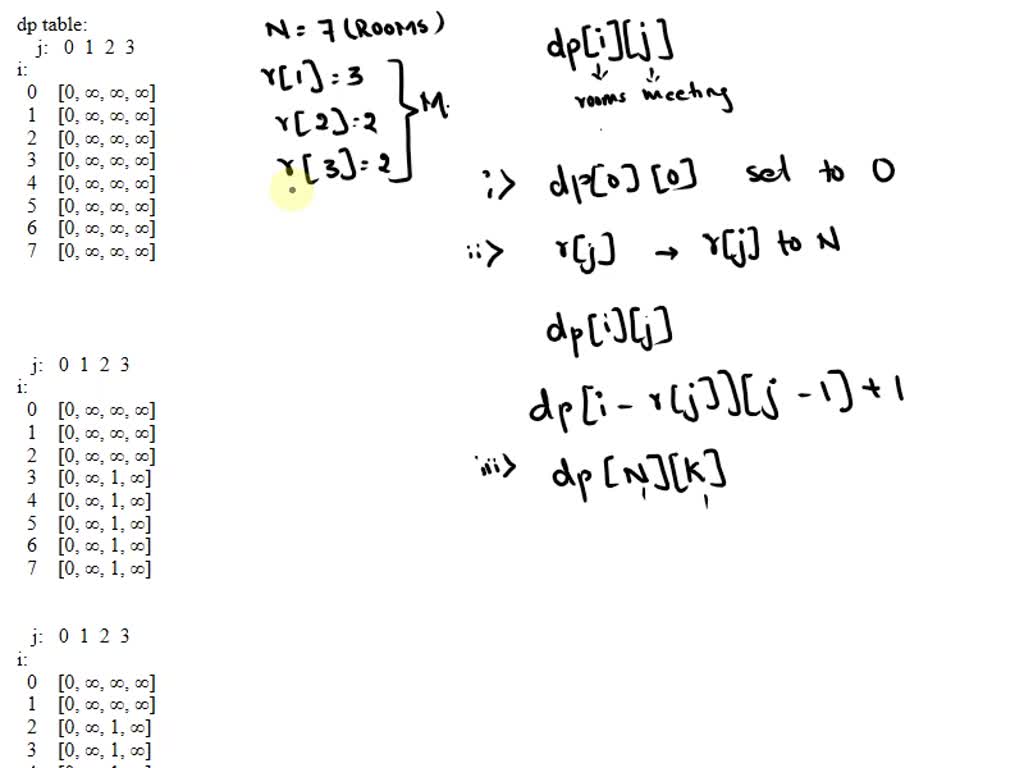 dp table:
j: 0 1 2 3
i:
0 [0, ∞, ∞, ∞]
1 [0, ∞, ∞, ∞]
2 [0, ∞, ∞, ∞]
3 [0, ∞, ∞, ∞]
4 [0, ∞, ∞, ∞]
5 [0, ∞, ∞, ∞]
6 [0, ∞, ∞, ∞]
7 [0, ∞, ∞, ∞]
j: 0 1 2 3
i:
0 [0, ∞, ∞, ∞]
1 [0, ∞, ∞, ∞]
2 [0, ∞, ∞, ∞]
3 [0, ∞, 1, ∞]
4 [0, ∞, 1, ∞]
5 [0, ∞, 1, ∞]
6 [0, ∞, 1, ∞]
7 [0, ∞, 1, ∞]
j: 0 1 2 3
i:
0 [0, ∞, ∞, ∞]
1 [0, ∞, ∞, ∞]
2 [0, ∞, 1, ∞]
3 [0, ∞, 1, ∞]
N = 7 (ROOMS)
r[1] = 3
r[2] = 2
r[3] = 2
M.
dp[i][j]
rooms meeting
i> dp[0][0] set to 0
ii> r[j] → r[j] to N
dp[i][j]
dp[i - r[j]][j - 1] + 1
iii> dp[N][K]